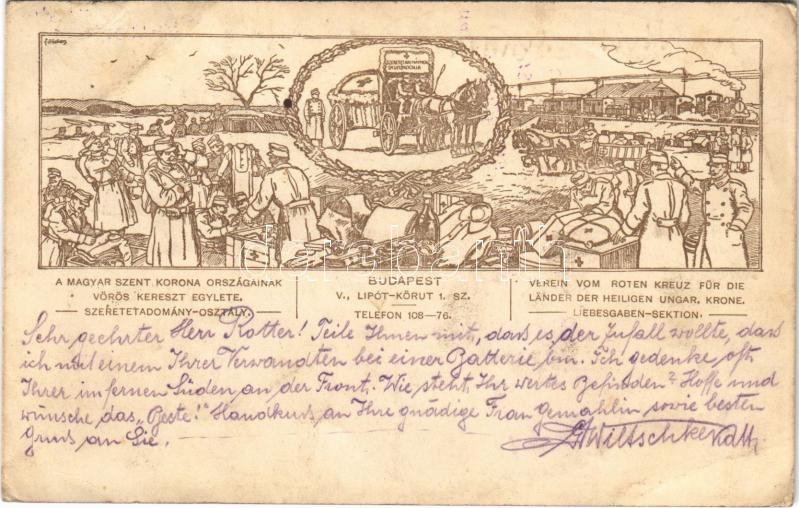 A MAGYAR SZENT KORONA ORSZÁGAINAK
VÖRÖS KERESZT EGYLETE.
SZERETETADOMÁNY-OSZTÁLY.
BUDAPEST
V., LIPÓT-KÖRUT 1. SZ.
TELEFON 108—76.
VEREIN VOM ROTEN KREUZ FÜR DIE
LÄNDER DER HEILIGEN UNGAR. KRONE.
LIEBESGABEN-SEKTION.
Sehr geehrter Herr Rotter! Teile Ihnen mit, dass es der Zufall wollte, dass
ich mit einem Ihrer Verwandten bei einer Batterie bin. Ich gedenke oft
Ihrer im fernen Süden an der Front. Wie steht Ihr wertes Befinden? Hoffe und
wünsche das „Beste!" Handkuss an Ihre gnädige Frau Gemahlin sowie besten
Gruss an Sie.
darabanth